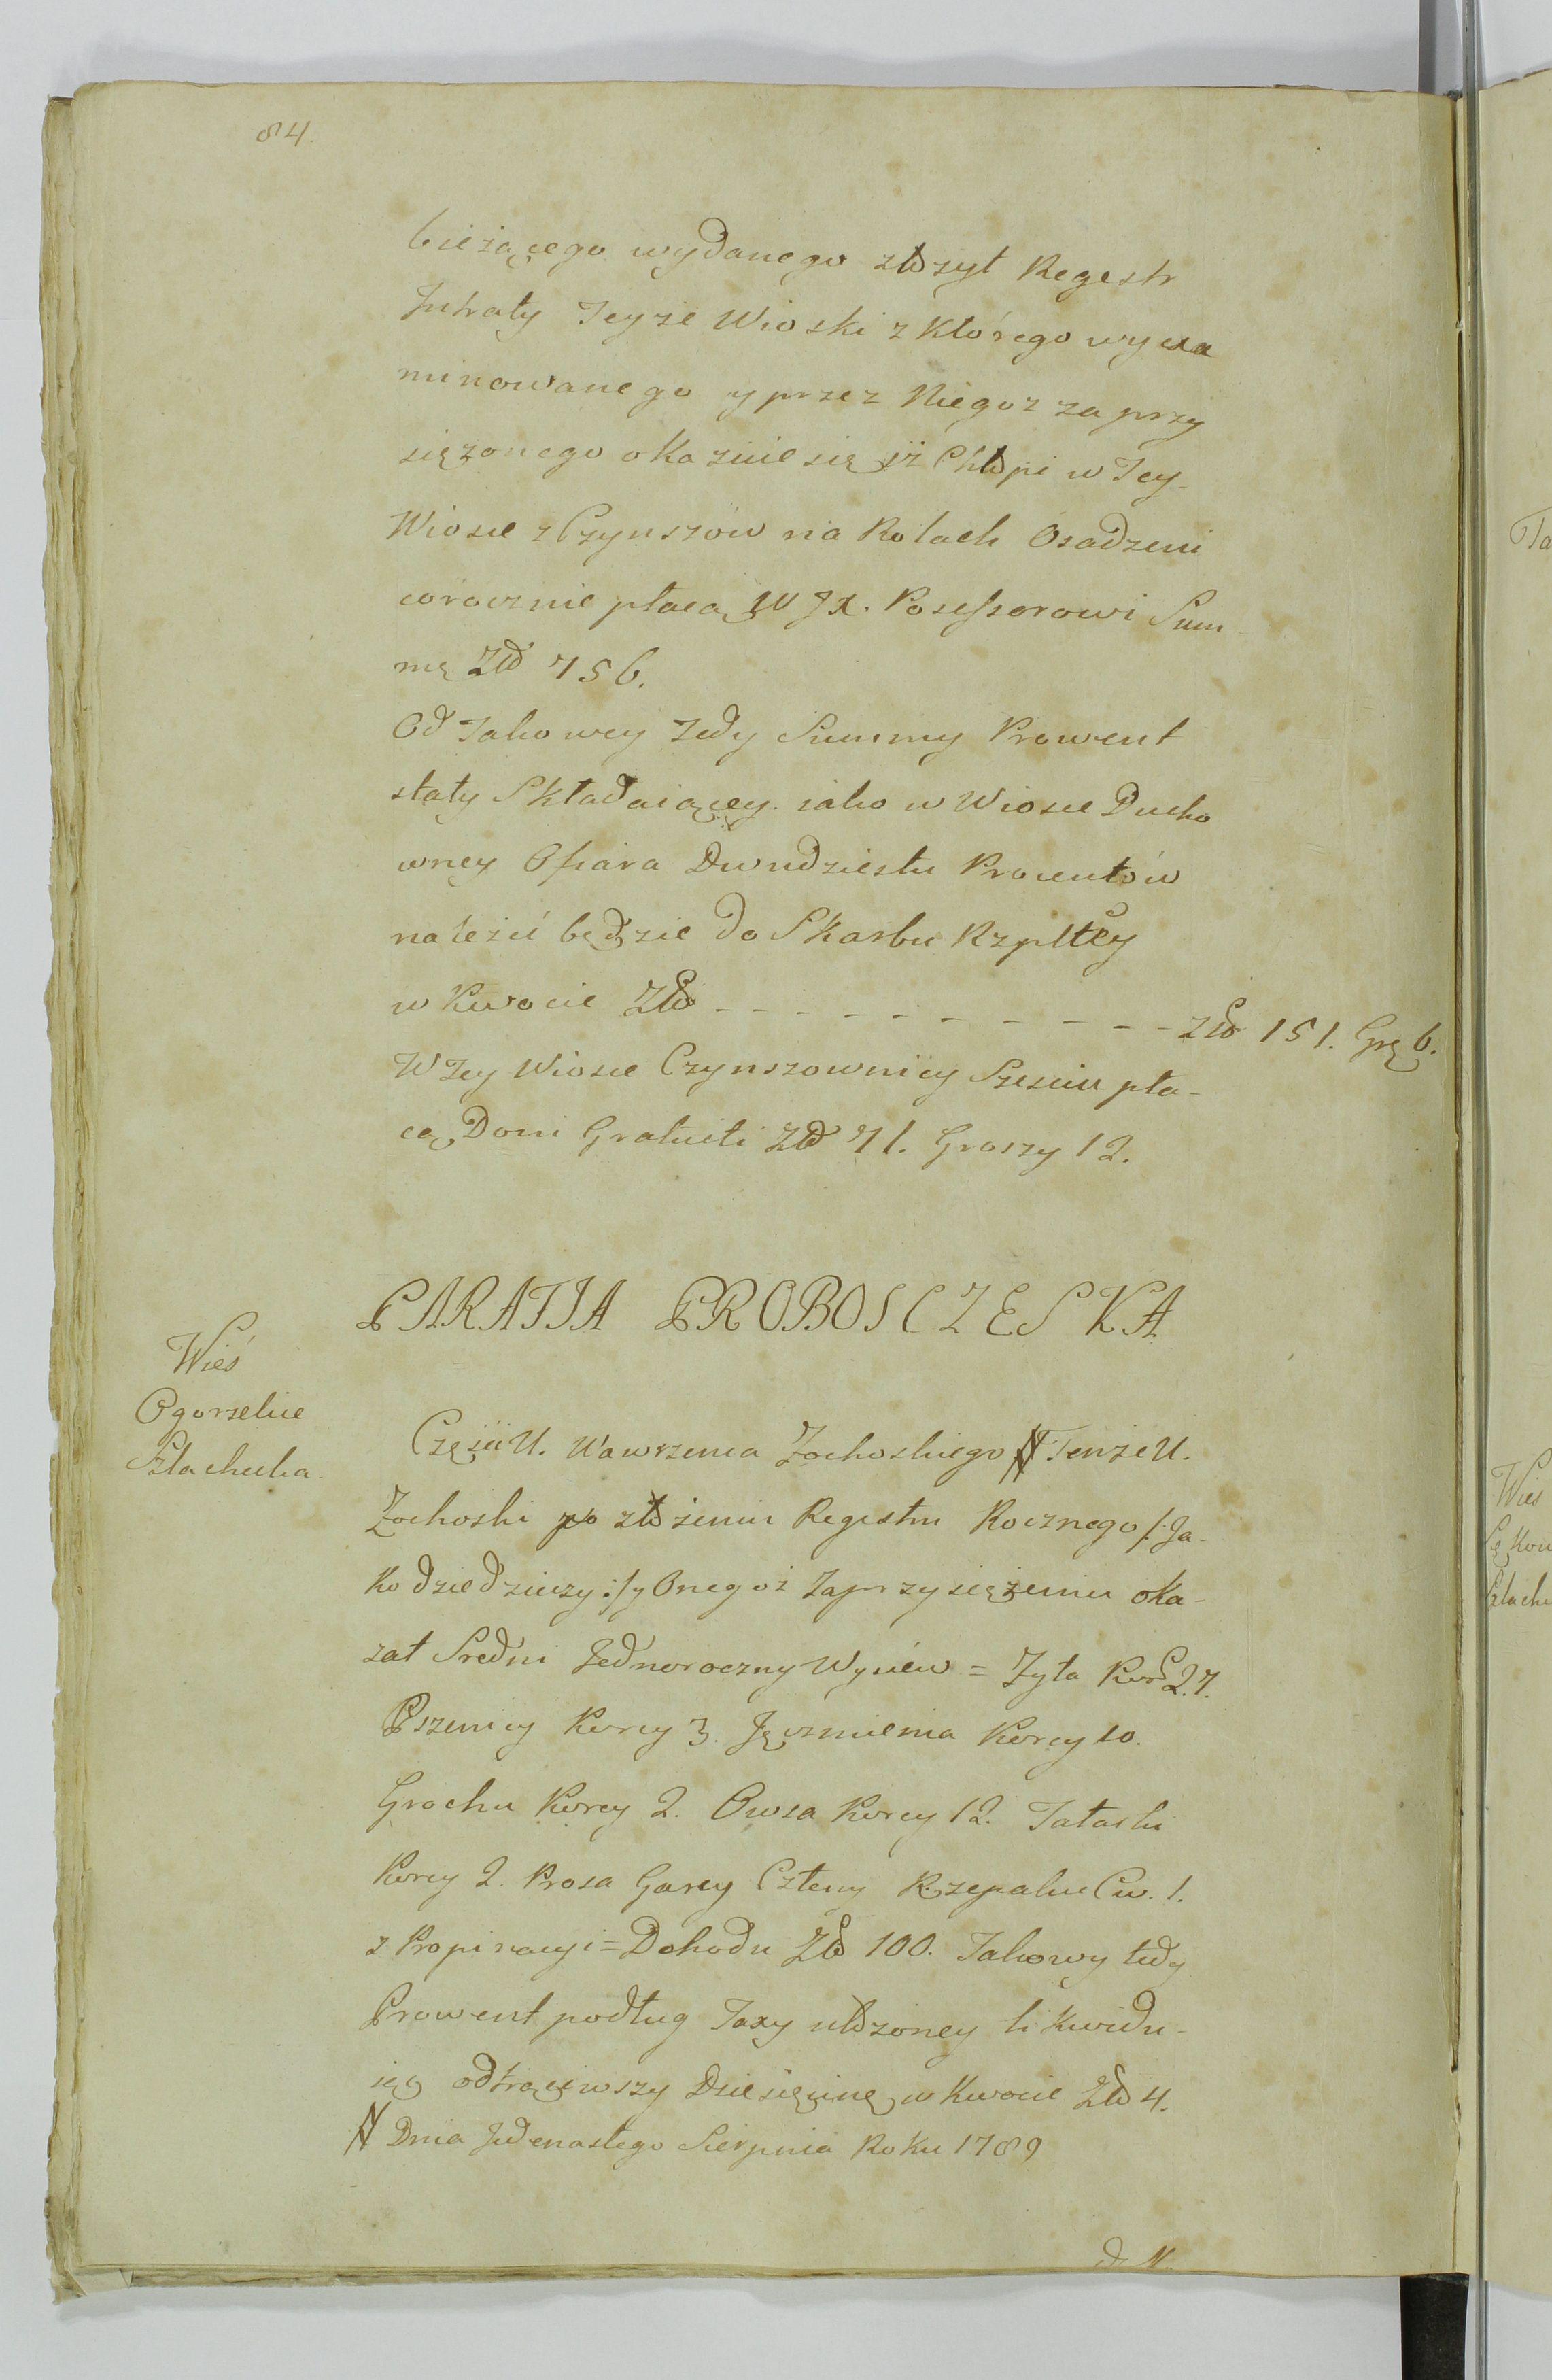 84.
bieżącego wydanego złożył Regestr
Intraty Teyże Wioski z którego wyexa
minowanego y przez Niegoż zaprzy
siężonego okazuie się iż Chłopi w Tey
Wiosce z Czynszów na Rolach Osadzeni
corocznie płacą W JX. Possessorowi Sum
mę Zło 756.
Od Takowey Tedy Summy Prowent
stały Składaiącey iako w Wiosce Ducho
wney Ofiara Dwudziestu Procentów
należeć będzie do Skarbu Rzpltey
w Kwocie Zło - - - - - - - - - - Zło 151. Grę 6.
W Tey Wiosce Czynszownicy Szesciu pła-
cą Doni Gratuiti Zło 71. Groszy 12.
PARAFIA PROBOSCZESKA
Wieś
Ogorzelice
Szlachecka
Częsci U. Wawrzenca Zochoskiego # Tenże U.
Zochoski po złożeniu Regestru Rocznego /: Ja-
ko dziedziczy :/ y Onegoż Zaprzysiężeniu oka-
zał Sredni Jednoroczny Wysiew = Zyta Kor. 27.
Pszenicy Korcy 3. Jęczmienia Korcy 10.
Grochu Korcy 2. Owsa Korcy 12. Tatarki
Korcy 2. Prosa Garcy Cztery Rzepaku Cw. 1.
z Propinacyi = Dohodu Zło 100. Takowy tedy
Prowent podług Taxy ułożoney likwidu-
iąc odtrąciwszy Dziesięcinę w Kwocie Zło 4.
# Dnia Jedenastego Sierpnia Roku 1789
Ta
Wieś
Szlache